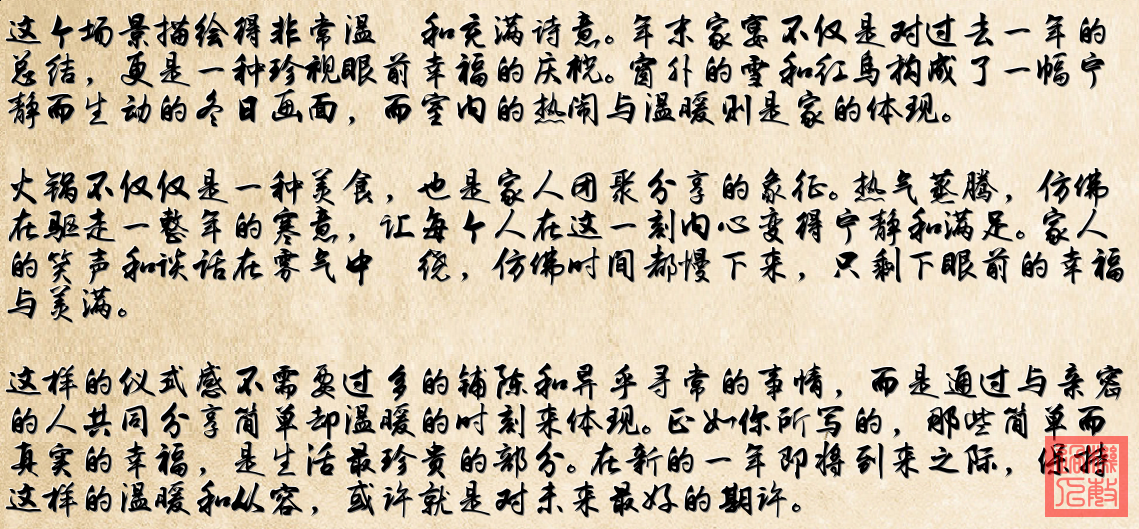 这个场景描绘得非常温 和充满诗意。年末家宴不仅是对过去一年的
总结，更是一种珍视眼前幸福的庆祝。窗外的雪和红鸟构成了一幅宁
静而生动的冬日画面，而室内的热闹与温暖则是家的体现。
火锅不仅仅是一种美食，也是家人团聚分享的象征。热气蒸腾，仿佛
在驱走一整年的寒意，让每个人在这一刻内心变得宁静和满足。家人
的笑声和谈话在雾气中 绕，仿佛时间都慢下来，只剩下眼前的幸福
与美满。
这样的仪式感不需要过多的铺陈和异乎寻常的事情，而是通过与亲密
的人共同分享简单却温暖的时刻来体现。正如你所写的，那些简单而
真实的幸福，是生活最珍贵的部分。在新的一年即将到来之际，保持
这样的温暖和从容，或许就是对未来最好的期许。